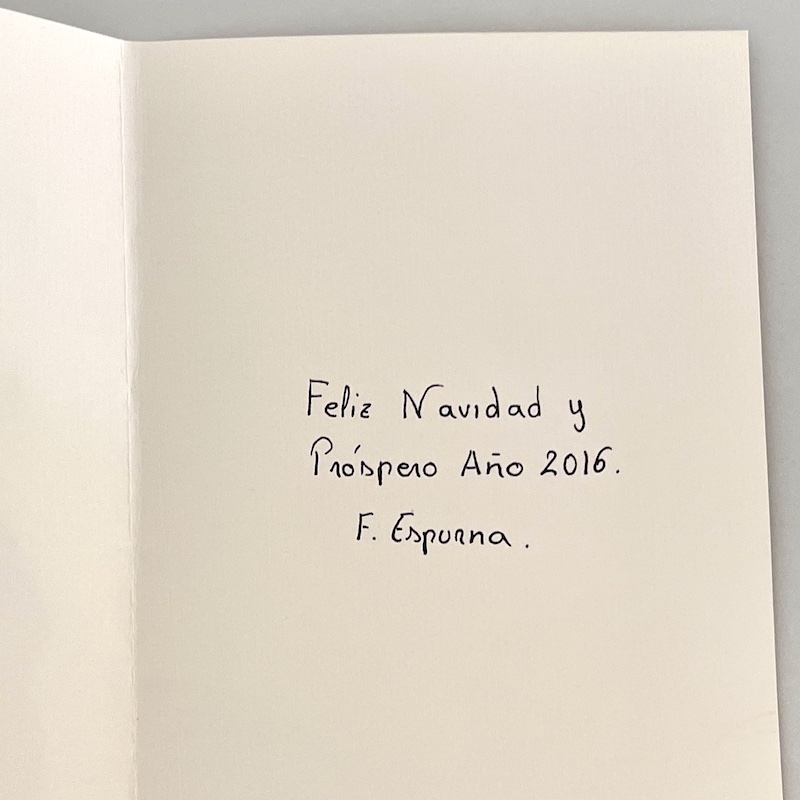 Feliz Navidad y
Próspero Año 2016.
F. Espurna.